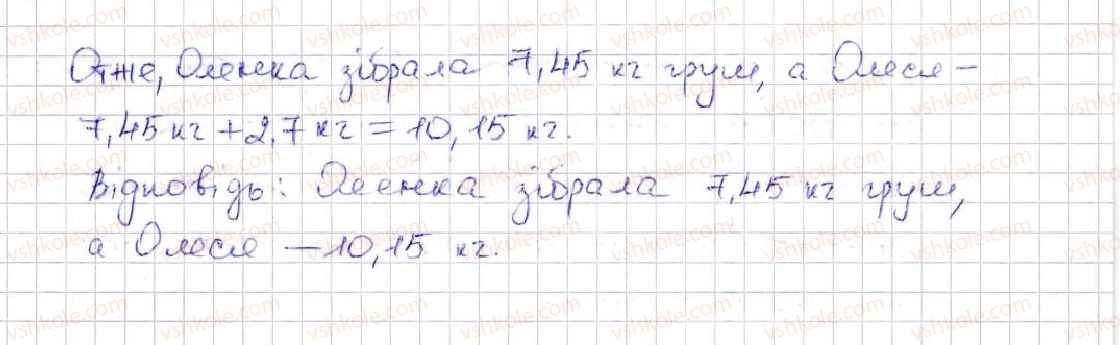 Отже, Оленка зібрала 7,45 кг груш, а Олеся –
7,45 кг + 2,7 кг = 10,15 кг.
Відповідь: Оленка зібрала 7,45 кг груш,
а Олеся – 10,15 кг.